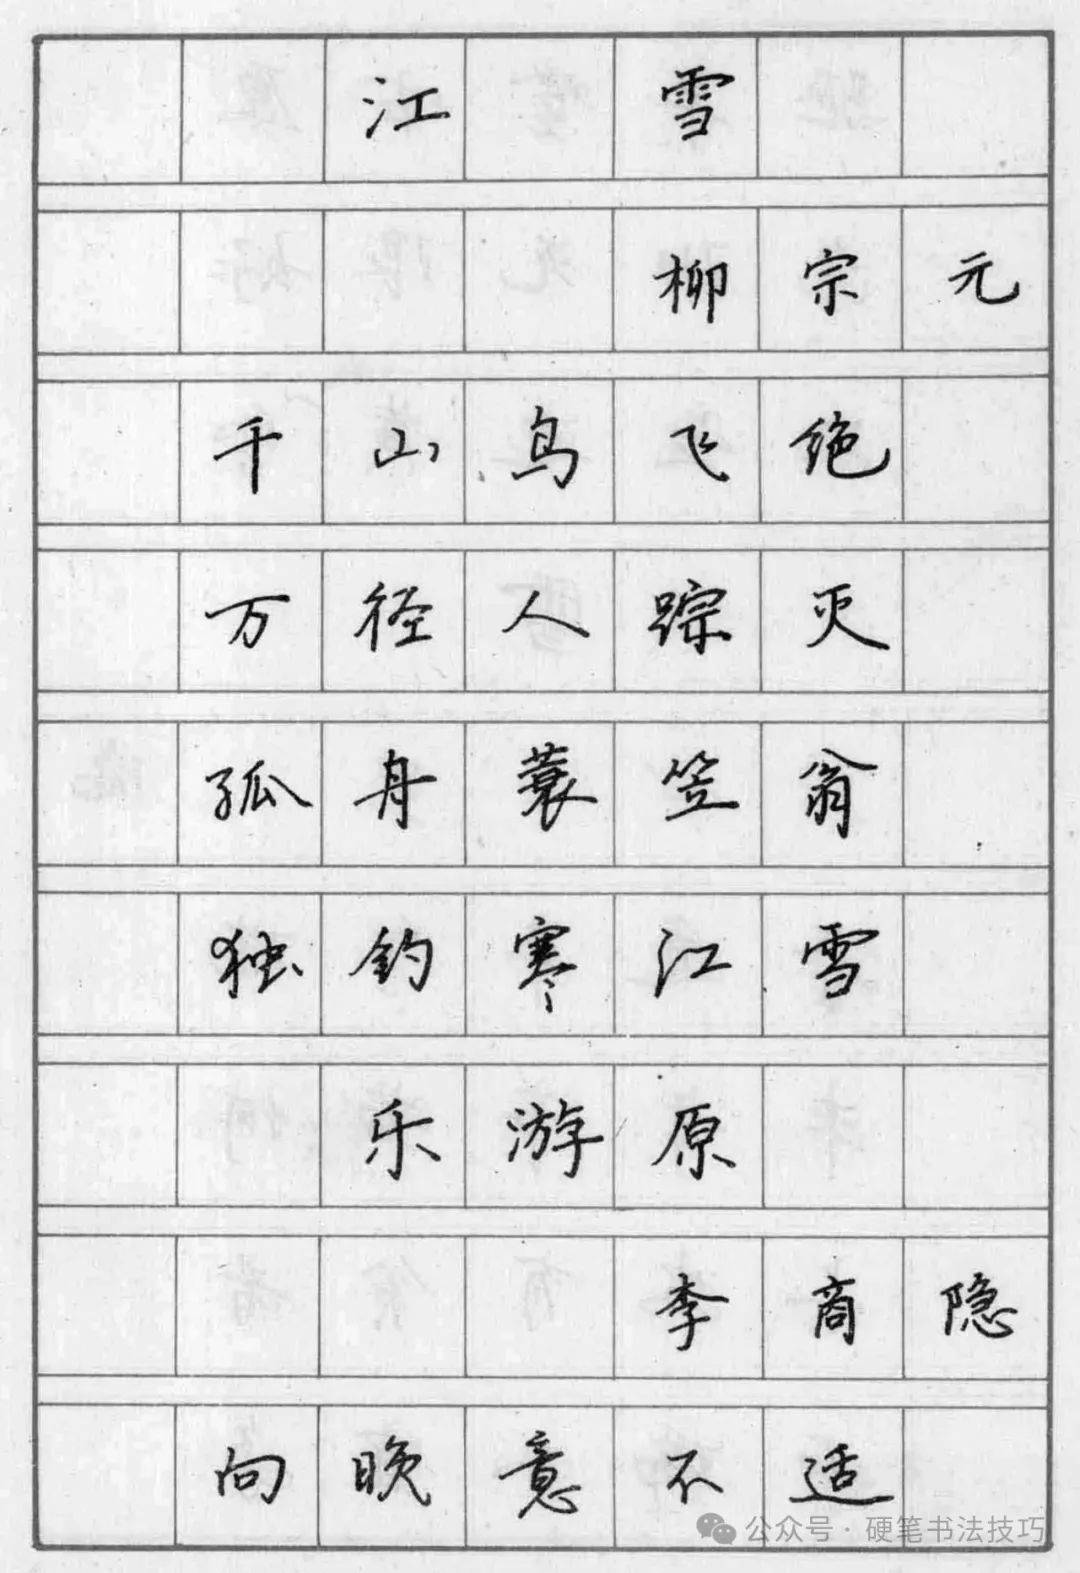 江雪
柳宗元
千山鸟飞绝
万径人踪灭
孤舟蓑笠翁
独钓寒江雪
乐游原
李商隐
向晚意不适
公众号·硬笔书法技巧